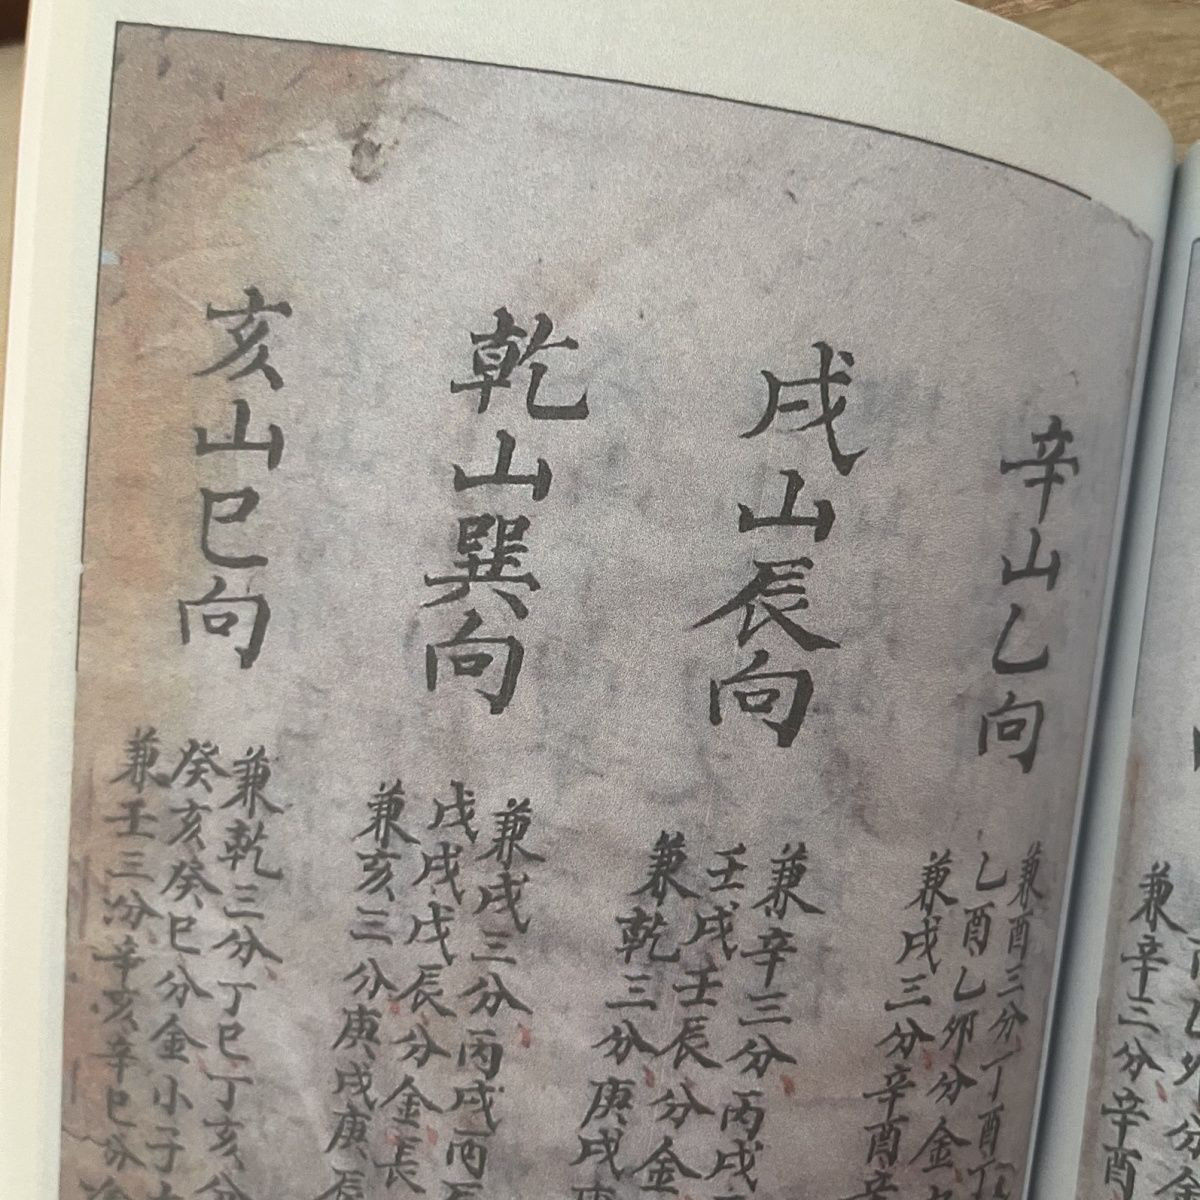 辛山乙向
兼酉三分丁酉丁
乙酉乙卯分金
兼戌三分辛酉辛
戌山辰向
兼辛三分丙戌
壬戌壬辰分金
兼乾三分庚戌庚
乾山巽向
兼戌三分丙戌丙辰
戊戌戊辰分金長
兼亥三分庚戌庚辰
亥山巳向
兼乾三分丁巳丁亥分
癸亥癸巳分金小子
兼壬三分辛亥辛巳分
兼辛三分辛酉